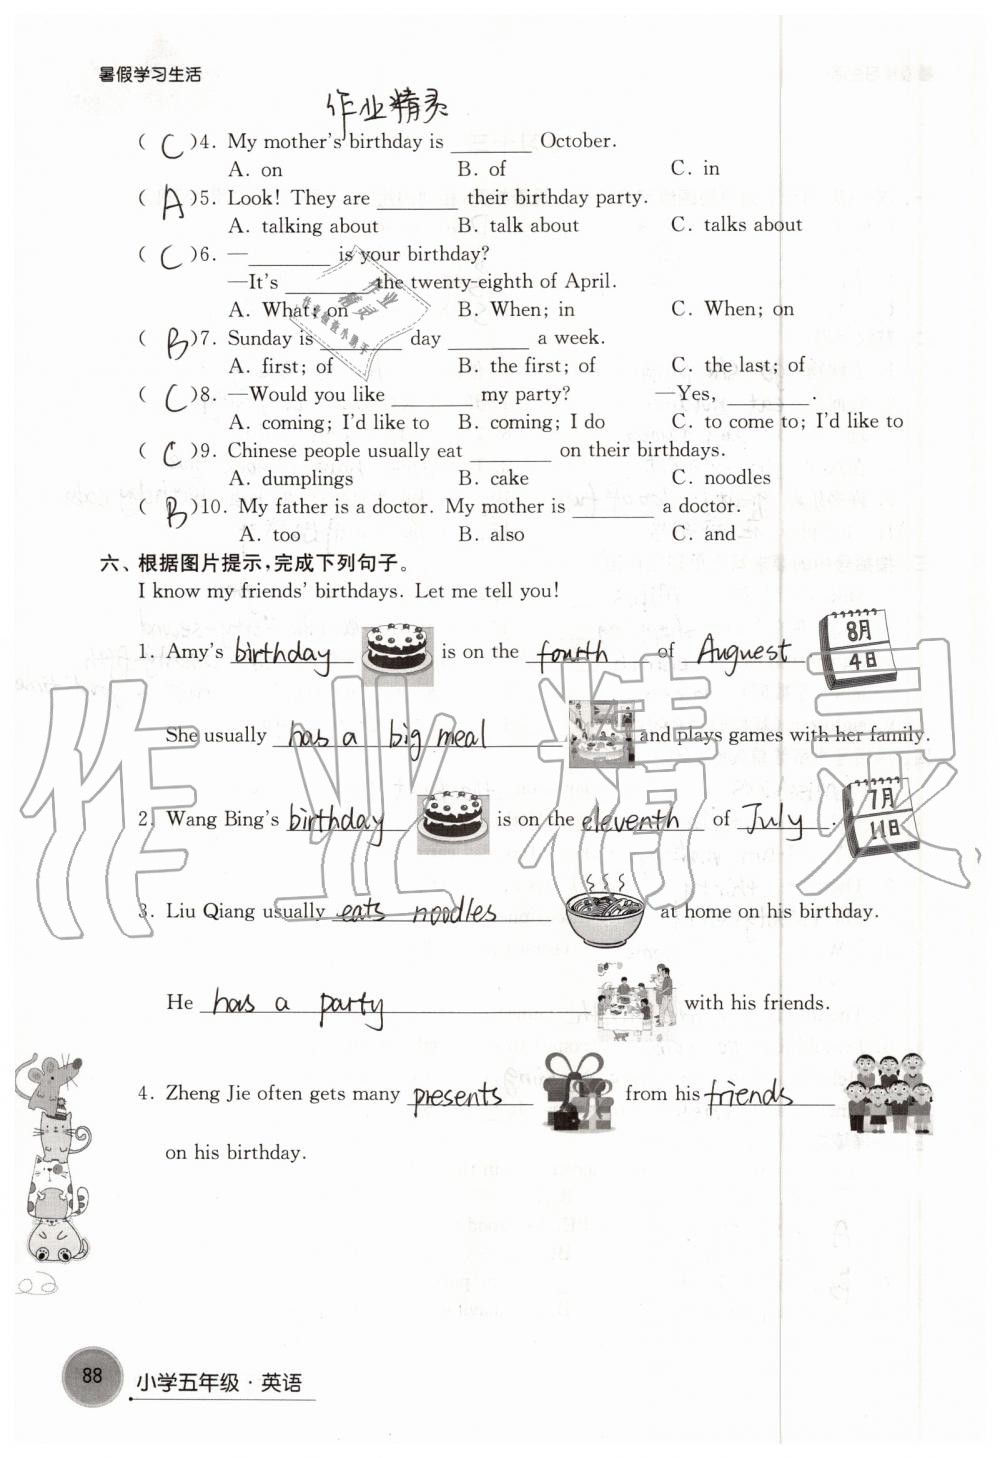 暑假学习生活
作业精灵
( C )4. My mother's birthday is ________ October.
A. on B. of C. in
( A )5. Look! They are ________ their birthday party.
A. talking about B. talk about C. talks about
( C )6. —________ is your birthday?
—It's ________ the twenty-eighth of April.
A. What; on B. When; in C. When; on
( B )7. Sunday is ________ day ________ a week.
A. first; of B. the first; of C. the last; of
( C )8. —Would you like ________ my party? —Yes, ________.
A. coming; I'd like to B. coming; I do C. to come to; I'd like to
( C )9. Chinese people usually eat ________ on their birthdays.
A. dumplings B. cake C. noodles
( B )10. My father is a doctor. My mother is ________ a doctor.
A. too B. also C. and
六、根据图片提示,完成下列句子。
I know my friends' birthdays. Let me tell you!
1. Amy's birthday is on the fourth of Auguest 8月 4日
She usually has a big meal and plays games with her family.
2. Wang Bing's birthday is on the eleventh of July. 7月 11日
3. Liu Qiang usually eats noodles at home on his birthday.
He has a party with his friends.
4. Zheng Jie often gets many presents from his friends
on his birthday.
88 小学五年级·英语
作业精灵